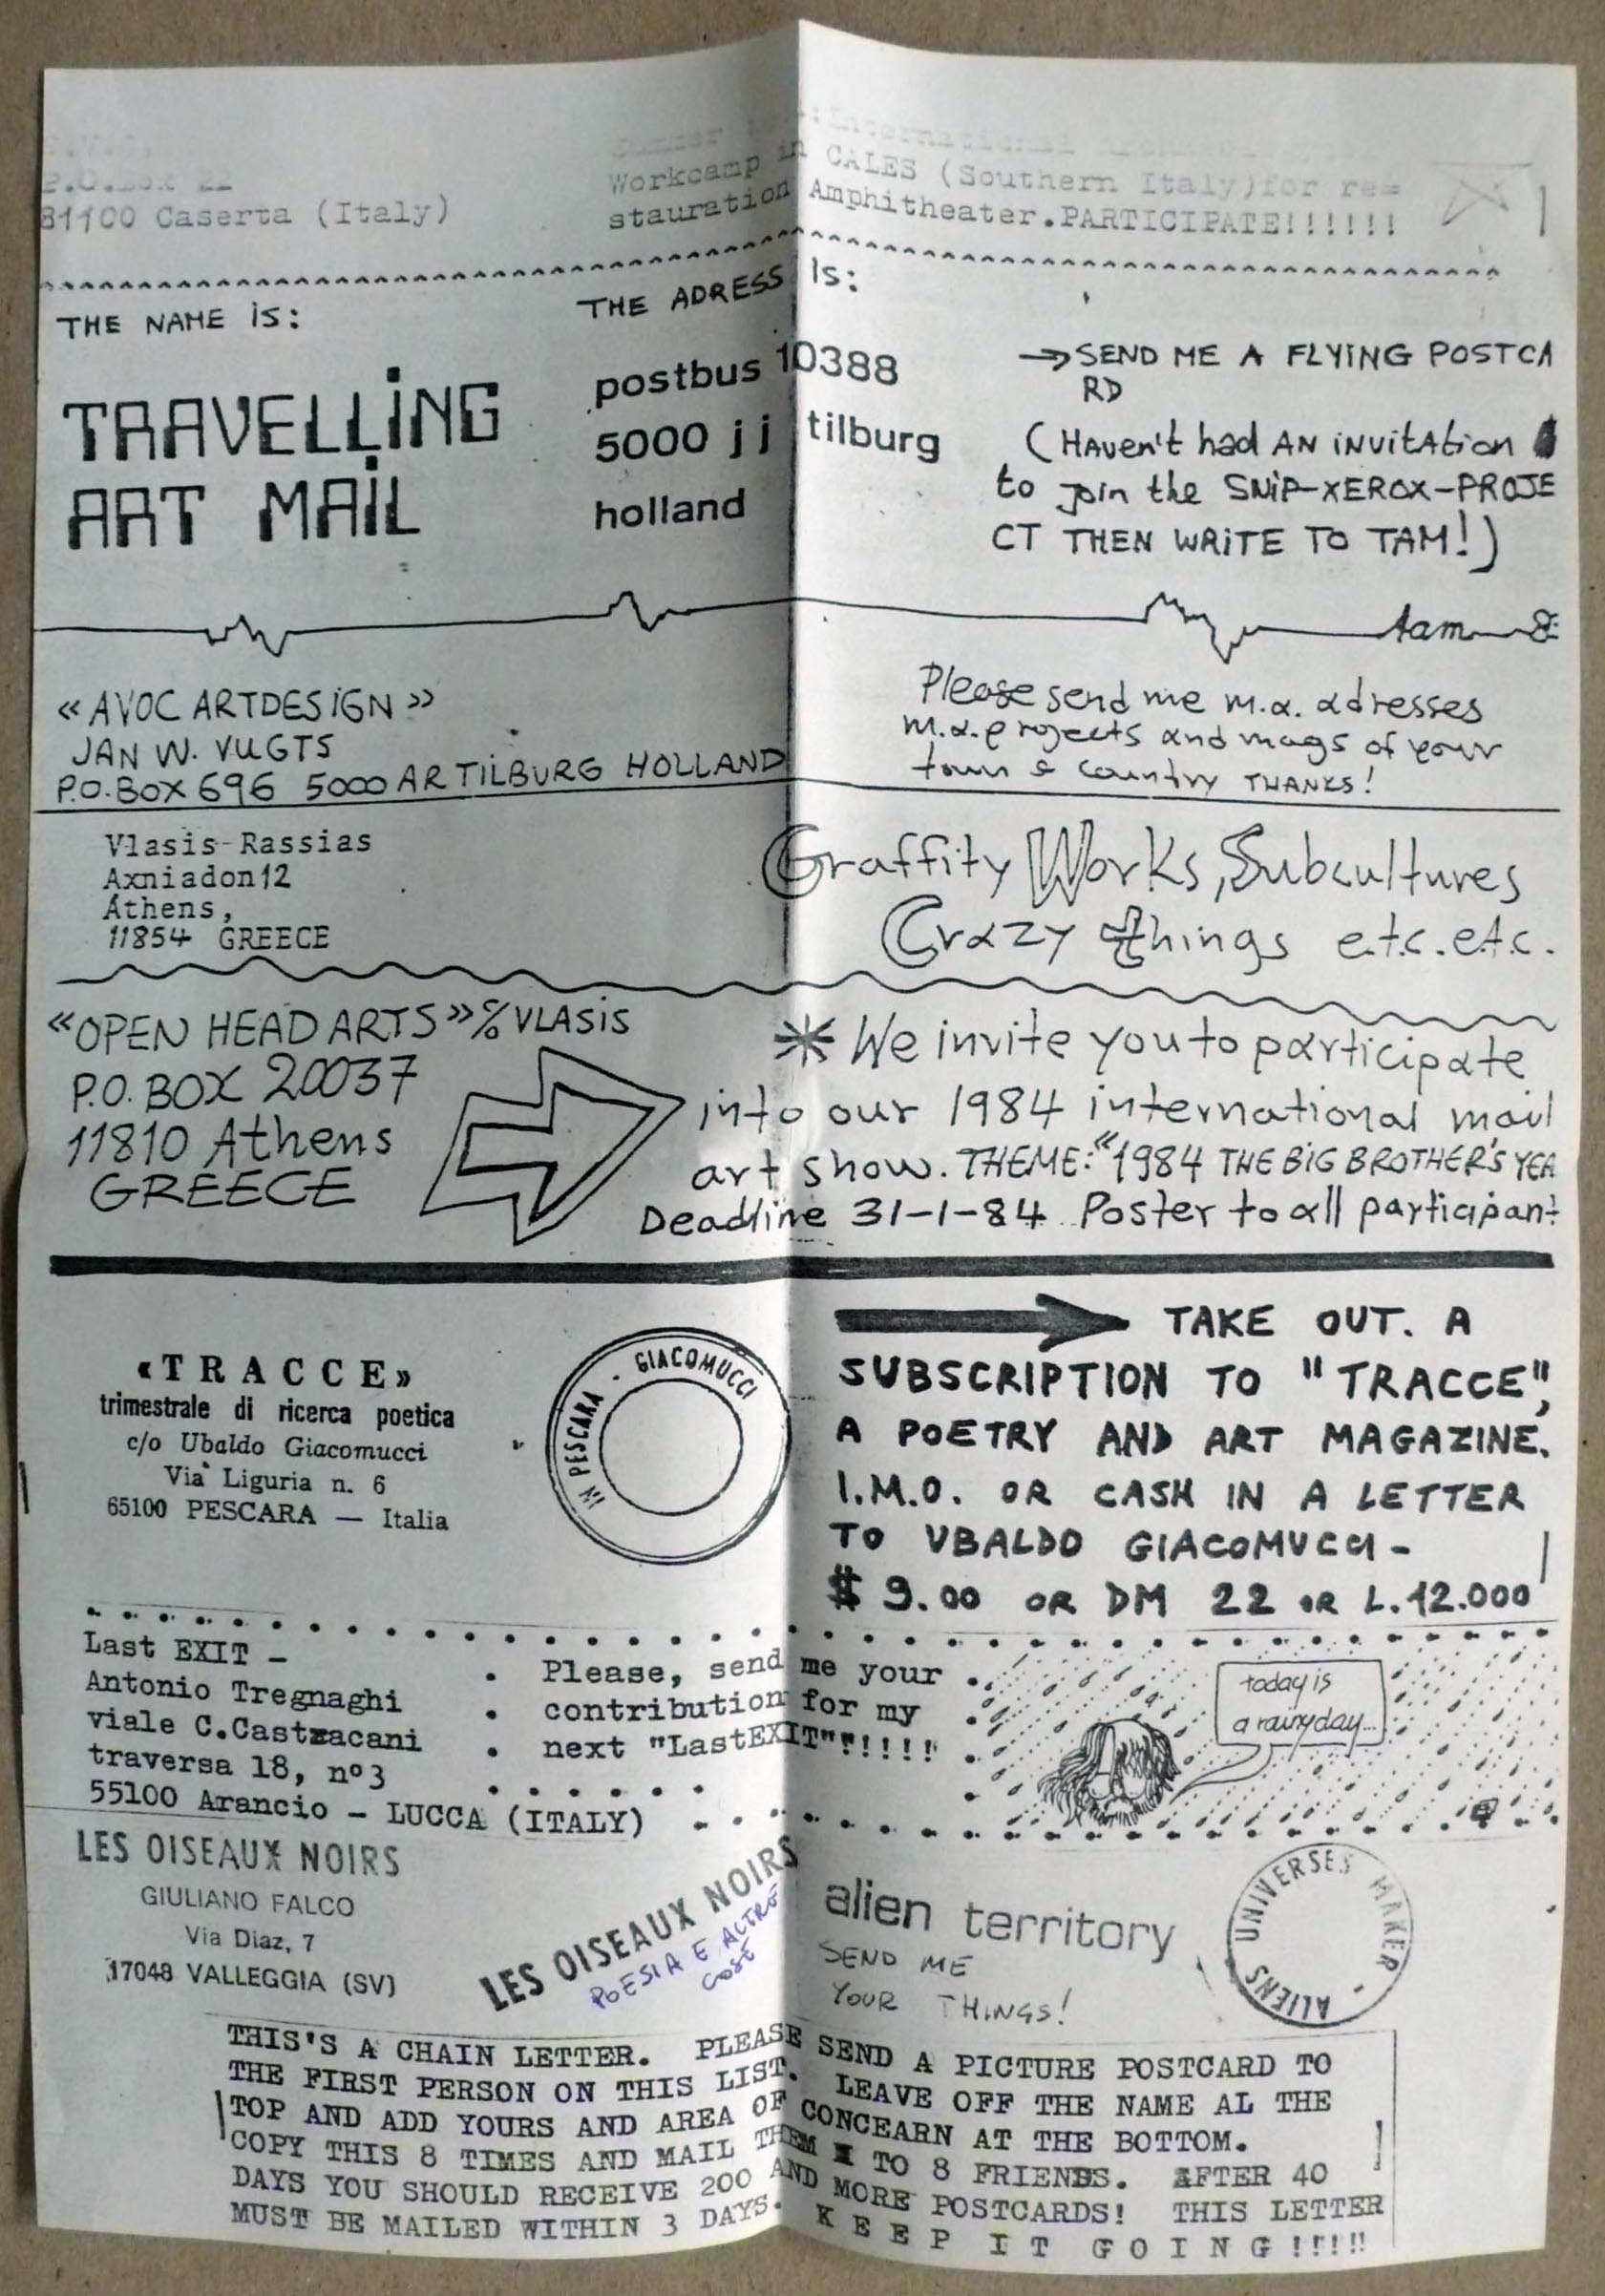 81100 Caserta (Italy)
Workcamp in CALES (Southern Italy)for re=
stauration Amphitheater.PARTICIPATE!!!!!!
THE NAME iS:
THE ADRESS is:
TRAVELLiNG
ART MAiL
postbus 10388
5000 jj tilburg
holland
→SEND ME A FLYiNG POSTCA
RD
(HAven't had AN iNVitAtion
to join the SNiP-XEROX-PROJE
CT THEN WRiTE TO TAM!)
tam
« AVOC ARTDESiGN »
JAN W. VUGTS
P.O. BOX 696 5000 AR TiLBURG HOLLAND
Please send me m.a. adresses
m.a. projects and mags of your
town & country THANKS!
Vlasis-Rassias
Axniadon12
Athens,
11854 GREECE
Graffity Works, Subcultures
Crazy things e.t.c. e.t.c.
«OPEN HEAD ARTS» % VLASiS
P.O. BOX 20037
11810 Athens
GREECE
* We invite you to participate
into our 1984 international mail
art show. THEME: “1984 THE BiG BROTHER'S YEA
Deadline 31-1-84 Poster to all participant
«TRACCE»
trimestrale di ricerca poetica
c/o Ubaldo Giacomucci
Via Liguria n. 6
65100 PESCARA — Italia
IN PESCARA - GIACOMUCCI
TAKE OUT. A
SUBSCRIPTION TO "TRACCE",
A POETRY AND ART MAGAZINE.
I.M.O. OR CASH IN A LETTER
TO UBALDO GIACOMUCCI -
$ 9.00 OR DM 22 OR L.12.000
Last EXIT -
Antonio Tregnaghi
viale C.Castracani
traversa 18, nº3
55100 Arancio - LUCCA (ITALY)
Please, send me your
contribution for my
next "LastEXIT"!!!!!
today is
a rainy day...
LES OISEAUX NOIRS
GIULIANO FALCO
Via Diaz, 7
17048 VALLEGGIA (SV)
LES OISEAUX NOIRS
POESIA E ALTRE
COSE
alien territory
SEND ME
YOUR THINGS!
UNIVERSES MAKER - ALIENS
THIS'S A CHAIN LETTER. PLEASE SEND A PICTURE POSTCARD TO
THE FIRST PERSON ON THIS LIST. LEAVE OFF THE NAME AL THE
TOP AND ADD YOURS AND AREA OF CONCEARN AT THE BOTTOM.
COPY THIS 8 TIMES AND MAIL THEM TO 8 FRIENDS. AFTER 40
DAYS YOU SHOULD RECEIVE 200 AND MORE POSTCARDS! THIS LETTER
MUST BE MAILED WITHIN 3 DAYS. K E E P I T G O I N G !!!!!